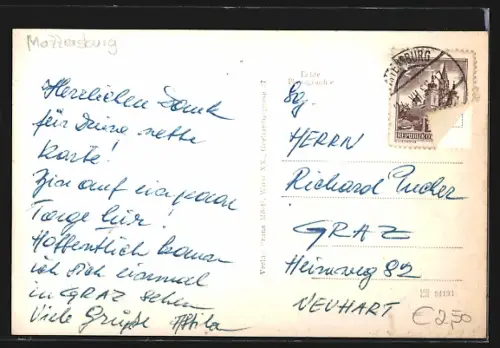 Mattersburg
Herzlichen Dank
für Deine nette
Karte!
Bin auf ein paar
Tage hier!
Hoffentlich kann
ich dich einmal
in GRAZ sehen
Viele Grüße Attila
Echte
Photographie
MATTERSBURG
Sg.
HERRN
Richard
GRAZ
Heinweg 82
NEUHART
€2,50